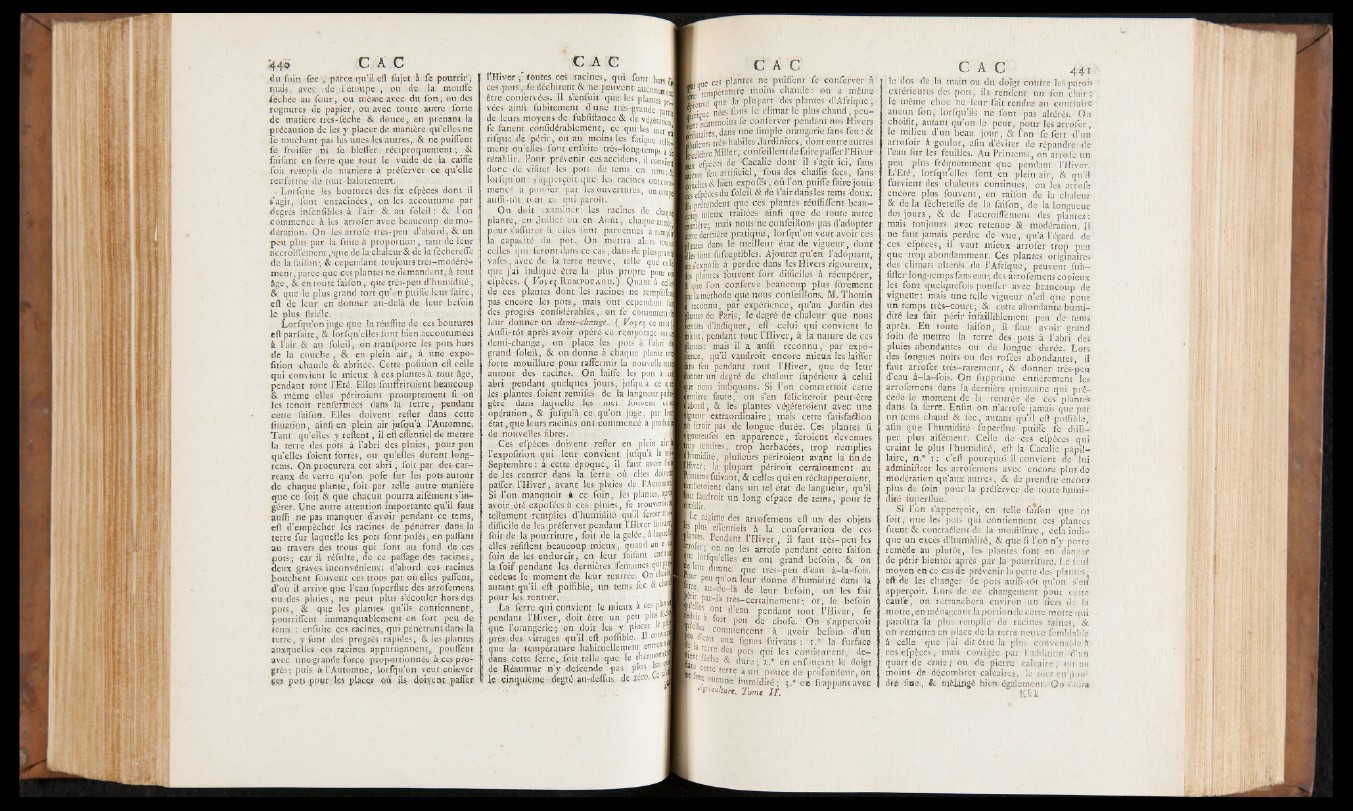 440 C A C
du foin sec, parce qu'il est sujet à se pourrir;
mais avec de l'étoupe, ou de la mousse
séchée au four, ou même avec du son, ou des
rognures de papier, ou avec toute autre sorte
de matière très-sèche & douce, en prenant la
précaution de les y placer de manière qu'elles ne
se touchent pas les unes les autres, & ne puissent
se froisser ni se blesser réciproquement; &
faisant en sorte que tout le vuide de la caisse
soit rempli de manière à préserver ce qu'elle
renferme de tout balotement.
Lorsque les boutures des six espèces dont il
s'agit, sont enracinées, on les accoutume par
degrés insensibles à l'air & au soleil: & l'on
commence à les arroser avec beaucoup de mo-
dération. On les arrose très-peu d'abord, & un
peu plus par la suite à proportion, tant de leur
accroissement, que de la chaleur & de la sécheresse
de la saison; & cependant toujours très-modéré-
ment, parce que ces plantes ne demandent, à tout
âge, & en toute saison, que très-peu d'humidité,
& que le plus grand tort qu'on puisse leur faire,
est de leur en donner au-delà de leur besoin
le plus strict.
Lorsqu'on juge que la réussite de ces boutures
est parfaite, & lorsqu'elles sont bien accoutumées
à l'air & au soleil, on transporte les pots hors
de la couche, & en plein air, à une expo-
sition chaude & abritée. Cette position est celle
qui convient le mieux à ces plantes à tout âge,
pendant tout l'Eté. Elles souffriroient beaucoup
& même elles périroient promptement si on
les tenoit renfermées dans la serre, pendant
cette saison. Elles doivent rester dans cette
situation, ainsi en plein air jusqu'à l'Automne.
Tant qu'elles y restent, il est essentiel de mettre
la terre des pots à l'abri des pluies, pour peu
qu'elles soient fortes, ou qu'elles durent long-
tems. On procurera cet abri, soit par des car-
reaux de verre qu'on pose sur les pots autour
de chaque plante, soit par telle autre manière
que ce soit & que chacun pourra aisément s'in-
gérer. Une autre attention importante qu'il faut
aussi ne pas manquer d'avoir pendant ce tems,
est d'empêcher les racines de pénétrer dans la
terre sur laquelle les pots sont posés, en passant
au travers des trous qui sont au fond de ces
pots; car il résulte, de ce passage des racines,
deux graves inconvéniens: d'abord ces racines
bouchent souvent ces trous par où elles passent,
d'où il arrive que l'eau superflue des arrosemens
ou des pluies, ne peut plus s'écouler hors des
pots, & que les plantes qu'ils contiennent,
pourrissent immanquablement en fort peu de
tems: ensuite ces racines, qui pénètrent dans la
terre, y font des progrès rapides, & les plantes
auxquelles ces racines appartiennent, poussent
avec une grande force proportionnée à ces pro-
grès; puis à l'Automne, lorsqu'on veut enlever
ces pots pour les placer où ils doivent passer
C A C
l'Hiver; toutes ces racines, qui sont hors de
ces pots, se déchirent & ne peuvent aucunement
être conservées. Il s'ensuit que les plantes
vées ainsi subitement d'une très-grande partie
de leurs moyens de subsistance & de végétation,
se fanent considérablement, ce qui les met en
risque de périr, ou au moins les fatigue
ment qu'elles sont ensuite très-long-temps à se
rétablir. Pour prévenir ces accidens, il convient
donc de visiter les pots de tems en tems: &
lorsqu'on s'apperçoit que les racines ont com-
mencé à pousser par les ouvertures, on coupe
aussi-tôt tout ce qui paroît.
On doit examiner les racines de chaque
plante, en Juillet ou en Août, chaque année
pour s'assurer si elles sont parvenues à remplir
la capacité du pot. On mettra alors toutes
celles qui seront dans ce cas, dans de plus grands
vases, avec de la terre neuve, telle que celle
que j'ai indiqué être la plus propre pour ces
espèces. (Voyez REMPOTAGE.) Quant à celles
de ces plantes dont les racines ne remplissent
pas encore les pots, mais ont cependant fait
des progrès considérables, on se contentera de
leur donner un demi-change. (Voyez ce mot.)
Aussi-tôt après avoir opéré ce rempotage ou ce
demi-change, on place les pots à l'abri du
grand soleil, & on donne à chaque plante une
forte mouillure pour raffermir la nouvelle terre
autour des racines. On laisse les pots à cet
abri pendant quelques jours, jusqu'à ce que
les plantes soient remises de la langueur passa-
gère dans laquelle les met souvent cette
opération, & jusqu'à ce qu'on juge, par leur
état, que leurs racines ont commencé à produire
de nouvelles fibres.
Ces espèces doivent rester en plein air à
l'exposition qui leur convient jusqu'à la mi-
Septembre: à cette époque, il faut avoir soin
de les rentrer dans la serre où elles doivent
passer l'Hiver, avant les pluies de l'Automne.
Si l'on manquoit à ce soin, les plantes, après
avoir été exposées à ces pluies, se trouveroient
tellement remplies d'humidité qu'il seroit très-
difficile de les préserver pendant l'Hiver suivant,
soit de la pourriture, soit de la gelée, à laquelle
elles résistent beaucoup mieux, quand on a eu
soin de les endurcir, en leur faisant endurer
la soif pendant les dernières semaines qui pré-
cèdent le moment de leur rentrée. On choisit,
autant qu'il est possible, un tems sec & chaud
pour les rentrer.
La serre qui convient le mieux à ces plantes
pendant l'Hiver, doit être un peu plus sèche
que l'orangerie; on doit les y placer le plus
près des vitrages qu'il est possible. Il convient
que la température habituellement entretenue
dans cette serre, soit telle que le thermomètre
de Réaumur n'y descende pas plus bas que
le cinquième degré au-dessus de zéro.
C A C
que ces plantes ne puissent se conserver à
une température moins chaude: on a même
éprouvé que la plupart des plantes d'Afrique,
quoique nées sous le climat le plus chaud, peu-
vent néanmoins se conserver pendant nos Hivers
ordinaires, dans une simple orangerie sans feu: &
plusieurs très-habiles Jardiniers, dont entre autres
le célèbre Miller, conseillent de faire passer l'Hiver
aux espèces de Cacalie dont il s'agit ici, sans
aucun feu artificiel, sous des chassis secs, sans
couches & bien exposés, où l'on puisse faire jouir
ces espèces du soleil & de l'air dans les tems doux.
Ils prétendent que ces plantes réussissent beau-
coup mieux traitées ainsi que de toute autre
manière; mais nous ne conseillons pas d'adopter
cette dernière pratique, lorsqu'on veut avoir ces
plantes dans le meilleur état de vigueur, dont
elles sont susceptibles. Ajoutez qu'en l'adoptant,
on s'expose à perdre dans les Hivers rigoureux,
des plantes souvent fort difficiles à récupérer,
& que l'on conserve beaucoup plus sûrement
par la méthode que nous conseillons. M. Thouin
a reconnu, par expérience, qu'au Jardin des
plantes de Paris, le degré de chaleur que nous
venons d'indiquer, est celui qui convient le
mieux, pendant tout l'Hiver, à la nature de ces
plantes: mais il a aussi reconnu, par expé-
rience, qu'il vaudroit encore mieux les laisser
sans feu pendant tout l'Hiver, que de leur
donner un degré de chaleur supérieur à celui
que nous indiquons. Si l'on commettoit cette
dernière faute, on s'en féliciteroit peut-être
d'abord, & les plantes végéteroient avec une
vigueur extraordinaire; mais cette satisfaction
ne seroit pas de longue durée. Ces plantes si
vigoureuses en apparence, seroient devenues
trop tendres, trop herbacées, trop remplies
d'humidité, plusieurs périroient avant la fin de
l'Hiver; la plupart périroit certainement au
Printems suivant, & celles qui en réchapperoient,
resteroient dans un tel état de langueur, qu'il
leur faudroit un long espace de tems, pour se
rétablir.
Le régime des arrosemens est un des objets
les plus essentiels à la conservation de ces
plantes. Pendant l'Hiver, il faut très-peu les
arroser; on ne les arrose pendant cette saison
que lorsqu'elles en ont grand besoin, & on
ne leur donne que très-peu d'eau à-la-fois.
Pour peu qu'on leur donne d'humidité dans la
serre, au-de-là de leur besoin, on les fait
périr par-là très-certainement; or, le besoin
qu'elles ont d'eau pendant tout l'Hiver, se
réduit à fort peu de chose. On s'apperçoit
qu'elles commencent à avoir besoin d'un
peu d'eau aux signes suivans: 1.° la surface
de la terre des pots qui les contiennent, de-
vient sèche & dure; 2.° en enfonçant le doigt
dans cette terre à un pouce de profondeur, on
ne sent aucune humidité; 3.° en frappant avec
Agriculture. Tome II.
C A C 441
le dos de la main ou du doigt contre les parois
extérieures des pots, ils rendent un son clair;
le même choc ne leur fait rendre au contraire
aucun son, lorsqu'ils ne sont pas altérés. On
choisit, autant qu'on le peut, pour les arroser,
le milieu d'un beau jour, & l'on se sert d'un
arrosoir à goulot, afin d'éviter de répandre de
l'eau sur les feuilles. Au Printems, on arrose un
peu plus fréquemment que pendant l'Hiver.
L'Eté, lorsqu'elles sont en plein air, & qu'il
survient des chaleurs continues, on les arrose
encore plus souvent, en raison de la chaleur
& de la sécheresse de la saison, de la longueur
des jours, & de l'accroissement des plantes:
mais toujours avec retenue & modération. Il
ne faut jamais perdre de vue, qu'à l'égard de
ces espèces, il vaut mieux arroser trop peu
que trop abondamment. Ces plantes originaires
des climats altérés de l'Afrique, peuvent sub-
sister long-temps sans eau; des arrosemens copieux
les font quelquefois pousser avec beaucoup de
vigueur: mais une telle vigueur n'est que pour
un temps très-court; & cette abondante humi-
dité les fait périr infailliblement peu de tems
après. En toute saison, il faut avoir grand
soin de mettre la terre des pots à l'abri des
pluies abondantes ou de longue durée. Lors
des longues nuits ou des rosées abondantes, il
faut arroser très-rarement, & donner très-peu
d'eau à-la-fois. On supprime entièrement les
arrosemens dans la dernière quinzaine qui pré-
cède le moment de la rentrée de ces plantes
dans la serre. Enfin on n'arrose jamais que par
un tems chaud & sec, autant qu'il est possible,
afin que l'humidité superflue puisse se dissi-
per plus aisément. Celle de ces espèces qui
craint le plus l'humidité, est la Cacalie papil-
laire, n.° 1: c'est pourquoi il convient de lui
administrer les arrosemens avec encore plus de
modération qu'aux autres, & de prendre encore
plus de soin pour la préserver de toute humi-
dité superflue.
Si l'on s'apperçoit, en telle saison que ce
soit, que les pots qui contiennent ces plantes
suent & contractent de la moisissure, cela indi-
que un excès d'humidité, & que si l'on n'y porte
remède au plutôt, les plantes sont en danger
de périr bientôt après par la pourriture. Le seul
moyen en ce cas de prévenir la perte des plantes,
est de les changer de pots aussi-tôt qu'on s'en
apperçoit. Lors de ce changement pour cette
cause, on retranchera environ un tiers de la
motte, en ménageant la portion de cette motte qui
paroîtra la plus remplie de racines saines, &
on remettra en place de la terre neuve semblable
à celle que j'ai dit être la plus convenable à
ces espèces, mais corrigée par l'addition d'un
quart de craie, ou de pierre calcaire, ou au
moins de décombres calcaires, le tout en pou-
dre fine, & mélangé bien également. On aura
Kkk